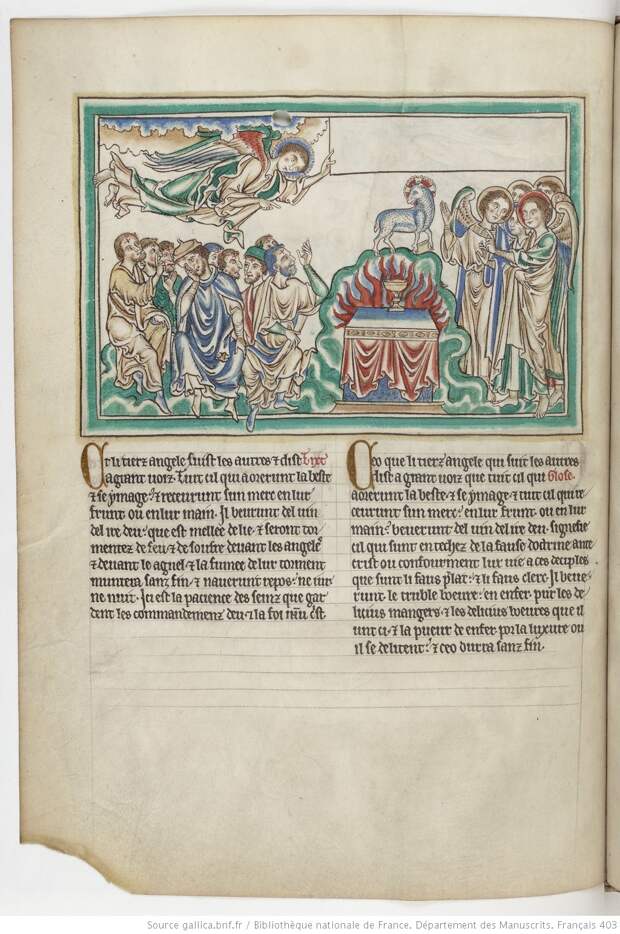 Et li tierz angele suist les autres ⁊ dist texte
a grant voiz. Tuit cil qui aorerunt la beste
⁊ se ymage: ⁊ recevrunt sun merc en lur
frunt ou en lur main. Il bevrunt del vin
del ire deu: que est mellee de lie, ⁊ seront tor
mentez de feu ⁊ de soufre devant les angeles
⁊ devant le aignel, ⁊ la fumee de lur torment
muntera sanz fin, ⁊ n'averunt repos: ne iur
ne nuit. Ici est la pacience des seinz que gar
dent les commandemenz deu, ⁊ la foi
Ceo que li tierz angele qui suit les autres
dist a grant voiz que tuit cil qui Glose.
aorerunt la beste, ⁊ se ymage, ⁊ tuit cil qui re
cevrunt sun merc: en lur frunt ou en lur
main: beverunt del vin del ire deu. signefie
cil qui sunt entechez de la fause doctrine ante
crist ou confourment lur vie a ces deciples
que sunt li faus plat: ⁊ li faus clerc. Il beve
runt le truble en enfer. pur les de
licius mangers, ⁊ les delicius que il
unt ci, ⁊ la pueur de enfer. por la luxure ou
il se delitent: ⁊ ceo durra sanz fin.
Source gallica.bnf.fr / Bibliothèque nationale de France. Département des Manuscrits. Français 403